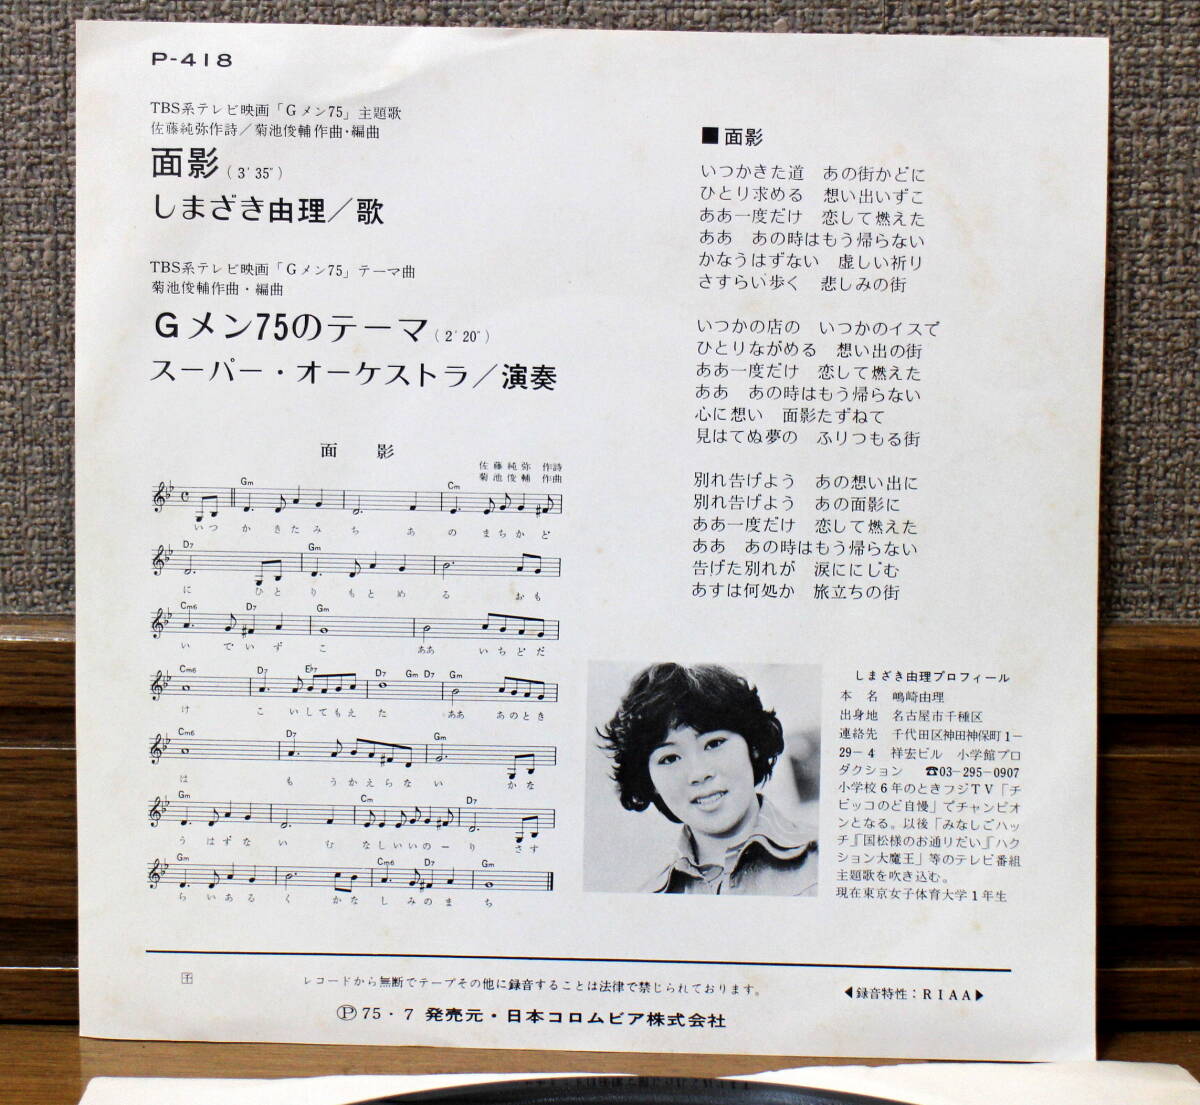 P-418
TBS系テレビ映画「Gメン75」主題歌
佐藤純弥作詩／菊池俊輔作曲・編曲
面影(3′35″)
しまざき由理／歌
TBS系テレビ映画「Gメン75」テーマ曲
菊池俊輔作曲・編曲
Gメン75のテーマ(2′20″)
スーパー・オーケストラ／演奏
面 影
佐藤純弥 作詩
菊池俊輔 作曲
Gm Cm
いつ か きたみ ち あ の まちか ど
D7 Gm
に ひと り もとめ る おも
Cm6 D7 Gm
い でいず こ ああ いちどだ
Cm6 D7 E♭7 D7 Gm D7 Gm
け こ いしてもえ た ああ あのとき
Cm6 D7 Gm
は も うかえらな い かな
Gm Cm D7
う はずな い む なしいいの ー り さす
Gm Cm6 D7 Gm
ら いある く かな し みのま ち
■面影
いつかきた道 あの街かどに
ひとり求める 想い出いずこ
ああ一度だけ 恋して燃えた
ああ あの時はもう帰らない
かなうはずない 虚しい祈り
さすらい歩く 悲しみの街
いつかの店の いつかのイスで
ひとりながめる 想い出の街
ああ一度だけ 恋して燃えた
ああ あの時はもう帰らない
心に想い 面影たずねて
見はてぬ夢の ふりつもる街
別れ告げよう あの想い出に
別れ告げよう あの面影に
ああ一度だけ 恋して燃えた
ああ あの時はもう帰らない
告げた別れが 涙ににじむ
あすは何処か 旅立ちの街
しまざき由理プロフィール
本 名 嶋崎由理
出身地 名古屋市千種区
連絡先 千代田区神田神保町1−
29−4 祥宏ビル 小学館プロ
ダクション ☎03-295-0907
小学校6年のときフジTV「チ
ビッコのど自慢」でチャンピオ
ンとなる。以後「みなしごハッ
チ』『国松様のお通りだい』『ハク
ション大魔王」等のテレビ番組
主題歌を吹き込む。
現在東京女子体育大学1年生
レコードから無断でテープその他に録音することは法律で禁じられております。
◀録音特性：RIAA▶
Ⓟ75・7 発売元・日本コロムビア株式会社